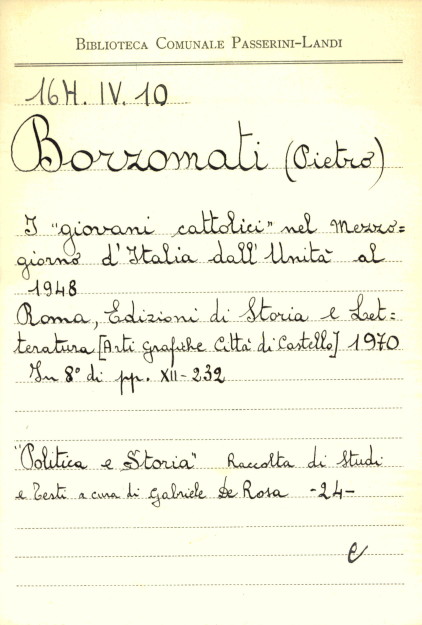 BIBLIOTECA COMUNALE PASSERINI-LANDI
16H. IV. 10
Borzomati (Pietro)
I "giovani cattolici" nel Mezzo=
giorno d'Italia dall'Unità al
1948
Roma, Edizioni di Storia e Let=
teratura [Arti Grafiche Città di Castello] 1970
In 8° di pp. XII-232
"Politica e Storia" Raccolta di Studi
e Testi a cura di Gabriele De Rosa -24-
e